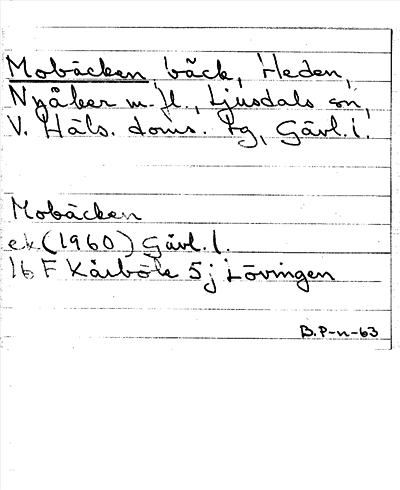 Mobäcken, bäck, Heden,
Nyåker m.fl., Ljusdals sn,
V. Häls. doms. tg, Gävl. l.
Mobäcken
ek (1960) Gävl. l.
16 F Kårböle 5j Lövingen
B.P-n-63